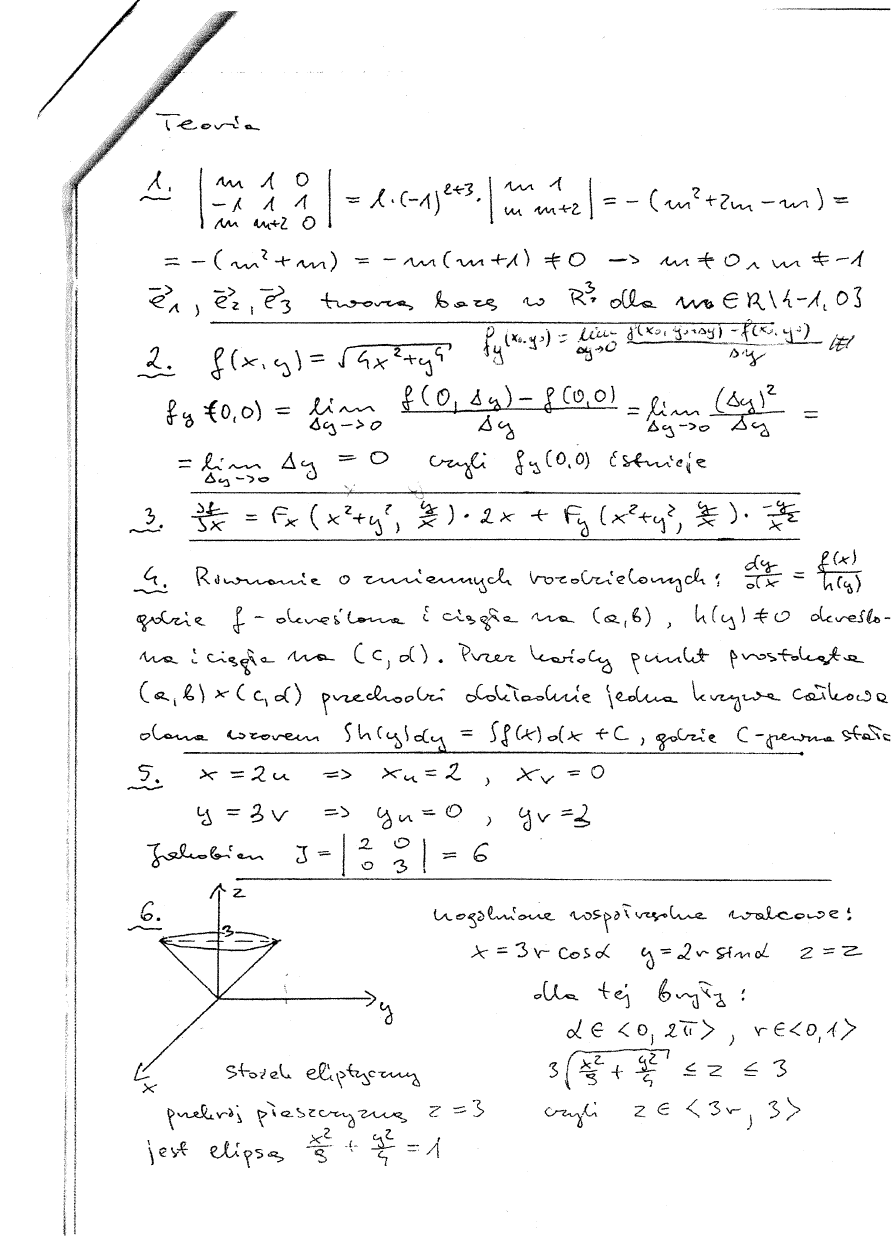 Teoria
1. | m 1 0 ; -1 1 1 ; m m+2 0 | = 1·(-1)^{2+3}· | m 1 ; m m+2 | = -(m²+2m-m) =
= -(m²+m) = -m(m+1) ≠ 0 -> m ≠ 0 ∧ m ≠ -1
e⃗₁, e⃗₂, e⃗₃ tworzą bazę w R³ dla m ∈ R\{-1, 0}
2. f(x,y) = √(4x²+y⁴) f_y(x₀,y₀) = lim_{Δy->0} (f(x₀, y₀+Δy) - f(x₀, y₀))/Δy
f_y(0,0) = lim_{Δy->0} (f(0, Δy) - f(0,0))/Δy = lim_{Δy->0} (Δy)²/Δy =
= lim_{Δy->0} Δy = 0 czyli f_y(0,0) istnieje
3. ∂f/∂x = F_x (x²+y², y/x) · 2x + F_y (x²+y², y/x) · -y/x²
4. Równanie o zmiennych rozdzielonych: dy/dx = f(x)/h(y)
gdzie f - określona i ciągła na (a,b), h(y) ≠ 0 określo-
na i ciągła na (c,d). Przez każdy punkt prostokąta
(a,b)×(c,d) przechodzi dokładnie jedna krzywa całkowa
dana wzorem ∫h(y)dy = ∫f(x)dx + C, gdzie C-pewna stała
5. x = 2u => x_u = 2, x_v = 0
y = 3v => y_u = 0, y_v = 3
Jakobian J = | 2 0 ; 0 3 | = 6
6.
z
3
y
x
stożek eliptyczny
przekrój płaszczyzną z = 3
jest elipsą x²/9 + y²/4 = 1
uogólnione współrzędne walcowe:
x = 3r cosα y = 2r sinα z = z
dla tej bryły:
α ∈ <0, 2π>, r ∈ <0,1>
3√(x²/9 + y²/4) ≤ z ≤ 3
czyli z ∈ <3r, 3>